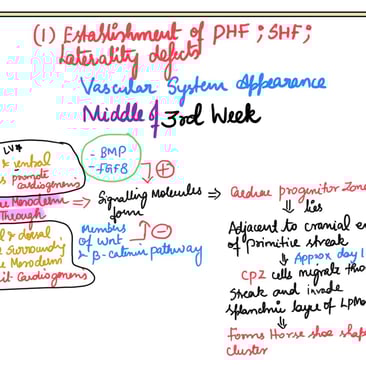 (1) Establishment of PHF ; SHF ;
Laterality defects
Vascular System Appearance
Middle of 3rd Week
LV*
& ventral
promote
cardiogenesis
Mesoderm
Through
& dorsal
Surrounding
Mesoderm
Cardiogenesis
- BMP
- FGF8
+
⇒ Signalling Molecules
form
−
Members
of Wnt
& β-catenin pathway
⇒ Cardiac progenitor Zone
⇓ lies
Adjacent to cranial en
of primitive streak
⇓ Approx day 1
CPZ cells migrate thro
streak and invade
splanchnic layer of LPM
⇓
Forms Horse shoe shap
cluster